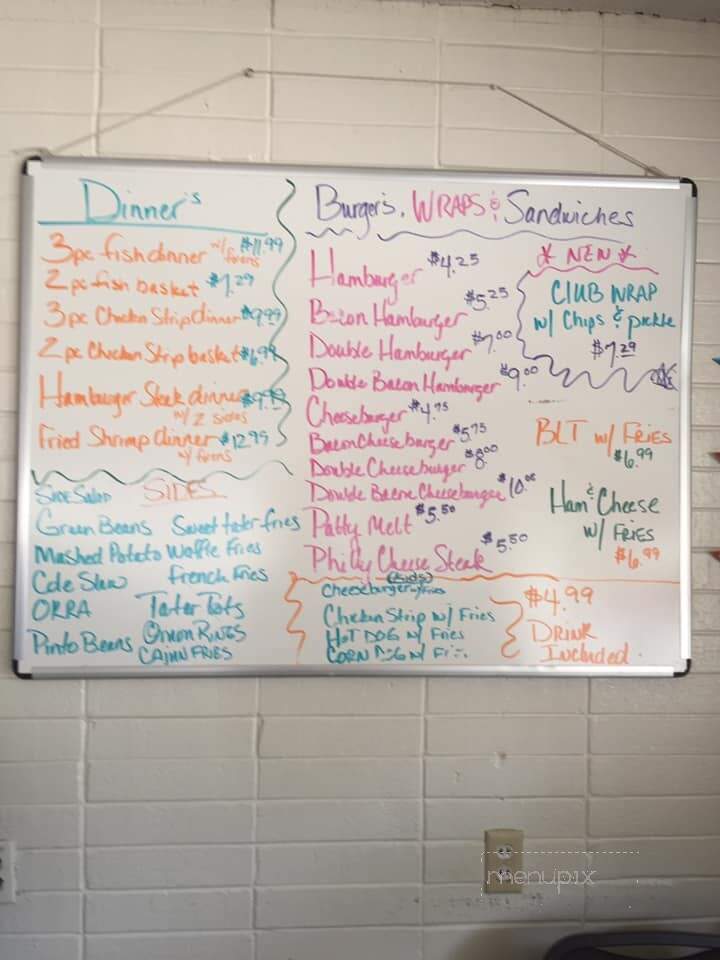 Dinner's
3pc fish dinner w/ fixins $11.99
2pc fish basket $7.29
3pc Chicken Strip dinner $9.99
2pc Chicken Strip basket $6.99
Hamburger Steak dinner $9.99
w/ 2 sides
Fried Shrimp dinner $12.95
w/ fixins
SIDES
Side Salad
Green Beans Sweet tater fries
Mashed Potato Waffle Fries
Cole Slaw French Fries
OKRA Tater Tots
Pinto Beans Onion RINGS
CAJUN FRIES
Burger's, WRAPS & Sandwiches
Hamburger $4.25
Bacon Hamburger $5.25
Double Hamburger $7.00
Double Bacon Hamburger $9.00
Cheeseburger $4.75
Bacon Cheeseburger $5.75
Double Cheeseburger $8.00
Double Bacon Cheeseburger $10.00
Patty Melt $5.50
Philly Cheese Steak $5.50
* NEW *
CLUB WRAP
w/ Chips & pickle
$7.29
BLT w/ FRIES
$6.99
Ham & Cheese
w/ FRIES
$6.99
(Kids)
Cheeseburger w/ Fries
Chicken Strip w/ Fries
HOT DOG w/ Fries
CORN DOG w/ Fries
$4.99
DRINK
Included
menupix